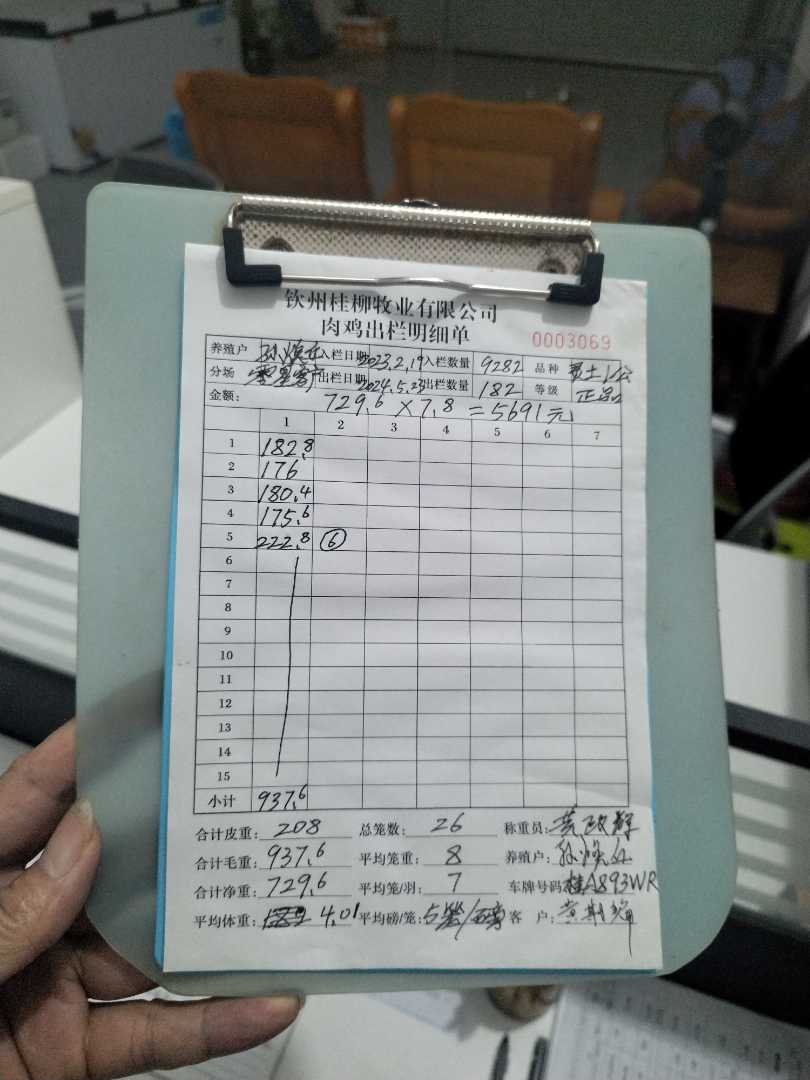 钦州桂柳牧业有限公司
肉鸡出栏明细单 0003069
养殖户 孙焕 入栏日期 2023.2.19 入栏数量 9282 品种 土
分场 零星客户 出栏日期 2024.5.23 出栏数量 182 等级 正品
金额: 729.6 × 7.8 = 5691元
1 2 3 4 5 6 7
1 182.8
2 176
3 180.4
4 175.6
5 222.8 ⑥
6
7
8
9
10
11
12
13
14
15
小计 937.6
合计皮重: 208 总笼数: 26 称重员: 黄
合计毛重: 937.6 平均笼重: 8 养殖户: 孙焕
合计净重: 729.6 平均笼/羽: 7 车牌号码: 桂A893WR
平均体重: 4.01 平均磅/笼: 5装/磅 客户: 黄